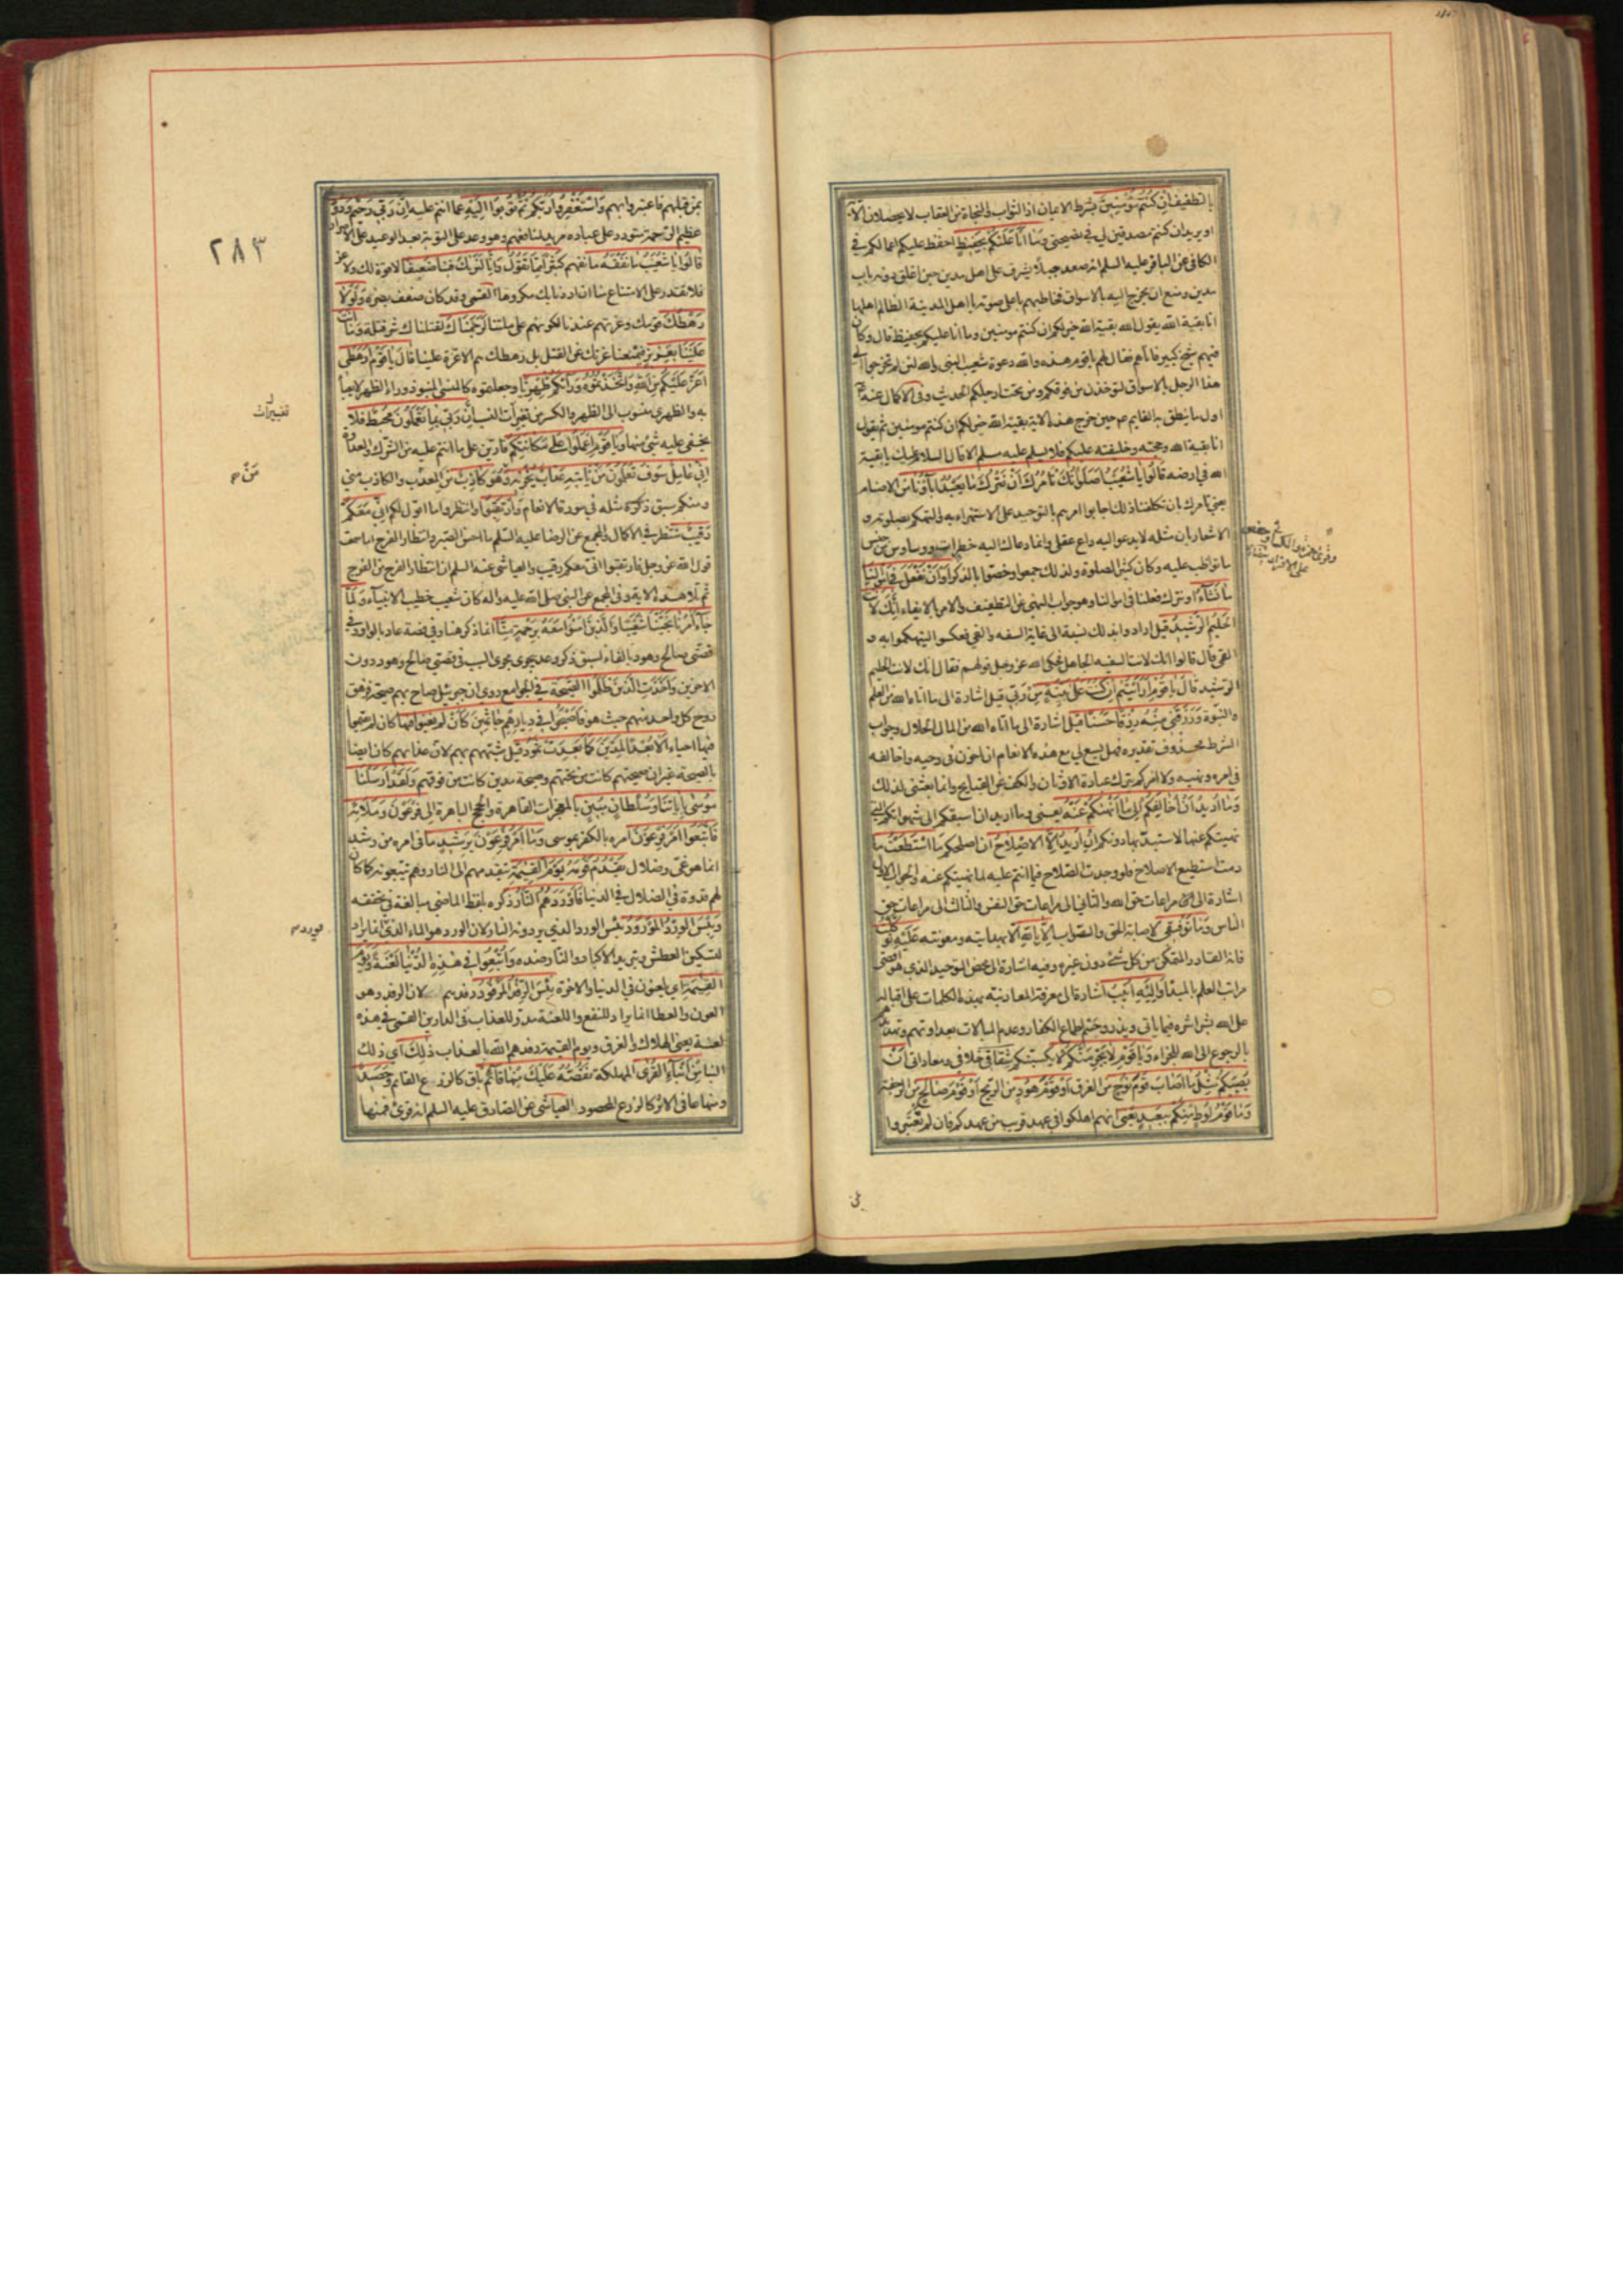 بالتطفيف إن كنتم مؤمنين بشرط الايمان اذ الثواب والنجاة من العقاب لا يحصلان الا به
او يريد ان كنتم مصدقين لي في نصيحتي وما انا عليكم بحفيظ احفظ عليكم اعمالكم في
الكافي عن الباقر عليه السلم انه صعد جبلا يشرف على اهل مدين حين اغلق دونه باب
مدين ومنع ان يخرج اليه بالاسواق فخاطبهم باعلى صوته يا اهل المدينة الظالم اهلها
انا بقية الله يقول الله بقية الله خير لكم ان كنتم مومنين وما انا عليكم بحفيظ قال وكان
فيهم شيخ كبير فاتاهم فقال لهم يا قوم هذه والله دعوة شعيب النبي والله لئن لم تخرجوا الى
هذا الرجل بالاسواق لتوخذن من فوقكم ومن تحت ارجلكم الحديث وفي الاكمال عنه ع
اول ما ينطق به القايم ع حين خرج هذه الاية بقية الله خير لكم ان كنتم مومنين ثم يقول
انا بقية الله وحجته وخليفته عليكم فلا يسلم عليه مسلم الا قال السلام عليك يا بقية
الله في ارضه قالوا يا شعيب أصلوتك تأمرك أن نترك ما يعبد اباؤنا من الاصنام
يعني تامرك بان تكلفنا ذلك اجابوا امرهم بالتوحيد على الاستهزاء به والتهكم بصلوته و
الاشعار بان مثله لا يدعو اليه داع عقلي وانما دعاك اليه خطرات ووساوس من جنس
ما تواظب عليه وكان كثير الصلوة ولذلك جمعوا وخصوا بالذكر أو أن نفعل في أموالنا
ما نشاء او نترك فعلنا في اموالنا وهو جواب النهي عن التطفيف والامر بالايفاء إنك لأنت
الحليم الرشيد قيل ارادوا بذلك نسبة الى غاية السفه والغي فعكسوا ليتهكموا به و
القمي قال قالوا انك لانت السفيه الجاهل فحكى الله عز وجل قولهم فقال انك لانت الحليم
الرشيد قال يا قوم أرأيتم إن كنت على بينة من ربي قيل اشارة الى ما اتاه الله من العلم
والنبوة ورزقني منه رزقا حسنا قيل اشارة الى ما اتاه الله من المال الحلال وجواب
الشرط محذوف تقديره فهل يسع لي مع هذه الانعام ان اخون في وحيه واخالفه
في امره ونهيه ولا امركم بترك عبادة الاوثان والكف عن القبايح وانما بعثني لذلك
وما أريد أن أخالفكم إلى ما أنهيكم عنه يعني وما اريد ان اسبقكم الى شهواتكم التي
نهيتكم عنها لاستبد بها دونكم إن أريد إلا الإصلاح ان اصلحكم ما استطعت ما
دمت استطيع الاصلاح فلو وجدت الصلاح فيما انتم عليه لما نهيتكم عنه والجواب الاول
اشارة الى مراعات حق الله والثاني الى مراعات حق النفس والثالث الى مراعات حق
الناس وما توفيقي لاصابة الحق والصواب إلا بالله الا بهدايته ومعونته عليه توكلت
فانه القادر المتمكن من كل شئ دون غيره وفيه اشارة الى محض التوحيد الذي هو اقصى
مراتب العلم بالمبدأ وإليه أنيب اشارة الى معرفة المعاد نبه بهذه الكلمات على اقباله
على الله بشراشره فيما ياتي ويذر وحسم اطماع الكفار وعدم المبالات بعداوتهم وتهديدهم
بالرجوع الى الله للجزاء ويا قوم لا يجرمنكم لا يكسبنكم شقاقي خلافي ومعاداتي أن
يصيبكم مثل ما أصاب قوم نوح من الغرق أو قوم هود من الريح أو قوم صالح من الرجفة
وما قوم لوط منكم ببعيد يعني انهم اهلكوا في عهد قريب من عهدكم فان لم تعتبروا
بمن
٢٨٣
بمن قبلهم فاعتبروا بهم واستغفروا ربكم ثم توبوا إليه عما انتم عليه إن ربي رحيم ودود
عظيم الرحمة متودد على عباده مريد لمنافعهم وهو وعد على التوبة بعد الوعيد على الاصرار
قالوا يا شعيب ما نفقه ما نفهم كثيرا مما تقول وإنا لنريك فينا ضعيفا لا قوة لك ولا عز
فلا تقدر على الامتناع منا ان اردنا بك مكروها القمي وقد كان ضعف بصره ولولا
رهطك قومك وعزتهم عندنا لكونهم على ملتنا لرجمناك لقتلناك شر قتلة وما أنت
علينا بعزيز فيمنعنا عزتك عن القتل بل رهطك هم الاعزة علينا قال يا قوم أرهطي
أعز عليكم من الله واتخذتموه وراءكم ظهريا وجعلتموه كالمنسي المنبوذ وراء الظهر لا يعبأ
به والظهري منسوب الى الظهر والكسر من تغييرات النسب إن ربي بما تعملون محيط فلا
يخفى عليه شئ منها ويا قوم اعملوا على مكانتكم قارين على ما انتم عليه من الشرك والعداوة
إني عامل سوف تعلمون من يأتيه عذاب يخزيه ومن هو كاذب من المعذب والكاذب مني
ومنكم سبق ذكره مثله في سورة الانعام وارتقبوا وانتظروا ما اقول لكم إني معكم
رقيب منتظر في الاكمال والمجمع عن الرضا عليه السلم ما احسن الصبر وانتظار الفرج اما سمعت
قول الله عز وجل فارتقبوا اني معكم رقيب والعياشي عنه السلم ان انتظار الفرج من الفرج
ثم تلا هذه الاية وفي المجمع عن النبي صلى الله عليه واله كان شعيب خطيب الانبياء ولما
جاء أمرنا نجينا شعيبا والذين آمنوا معه برحمة منا انما ذكر هنا وفي قصة عاد بالواو وفي
قصتي صالح وهود بالفاء لسبق ذكر وعد يجري مجرى السبب في قصتي صالح وهود دون
الاخرين وأخذت الذين ظلموا الصيحة في الجوامع روى ان جبرئيل صاح بهم صيحة فزهق
روح كل واحد منهم حيث هو فأصبحوا في ديارهم جاثمين كأن لم يغنوا فيها كان لم يقيموا
فيها احياء ألا بعدا لمدين كما بعدت ثمود قيل شبههم بهم لان عذابهم كان ايضا
بالصيحة غير ان صيحتهم كانت من تحتهم وصيحة مدين كانت من فوقهم ولقد أرسلنا
موسى بآياتنا وسلطان مبين بالمعجزات القاهرة والحجج الباهرة إلى فرعون وملائه
فاتبعوا أمر فرعون امره بالكفر بموسى وما أمر فرعون برشيد ما في امره من رشد
انما هو غي وضلال يقدم قومه يوم القيمة يتقدمهم الى النار وهم يتبعونه كما كان
لهم قدوة في الضلال في الدنيا فأوردهم النار ذكره بلفظ الماضي مبالغة في تحققه
وبئس الورد المورود بئس المورد الذي يردونه النار لان الورد هو الماء الذي انما يراد
لتسكين العطش وتبريد الاكباد والنار ضده وأتبعوا في هذه الدنيا لعنة ويوم
القيمة اي يلعنون في الدنيا والاخرة بئس الرفد المرفود رفدهم لان الرفد وهو
العون والعطا انما يراد للنفع واللعنة مدد للعذاب في الدارين القمي في هذه
لعنة يعني الهلاك والغرق ويوم القيمة رفدهم الله بالعذاب ذلك اي ذلك
النبا من أنباء القرى المهلكة نقصه عليك منها قائم باق كالزرع القايم وحصيد
ومنها عافي الاثر كالزرع المحصود العياشي عن الصادق عليه السلم انه قرئ فمنها
تغييرات
مورد م